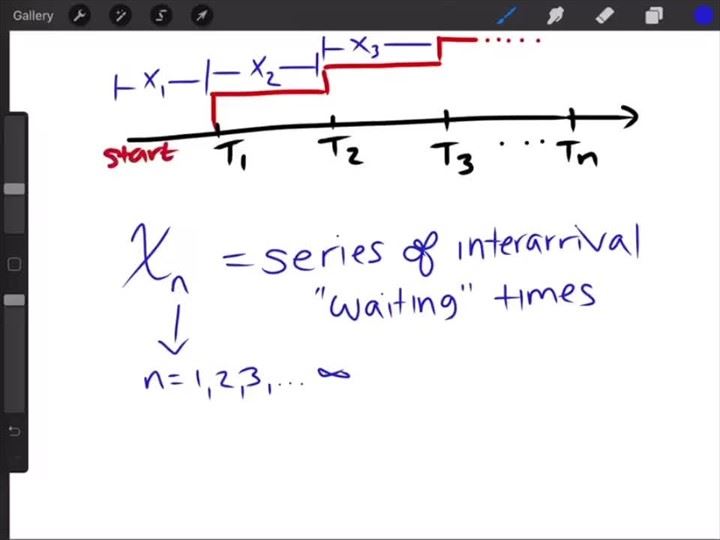 Gallery
X₃
X₁ X₂
start T₁ T₂ T₃ ... Tn
Xn = series of interarrival
"waiting" times
n=1,2,3,... ∞